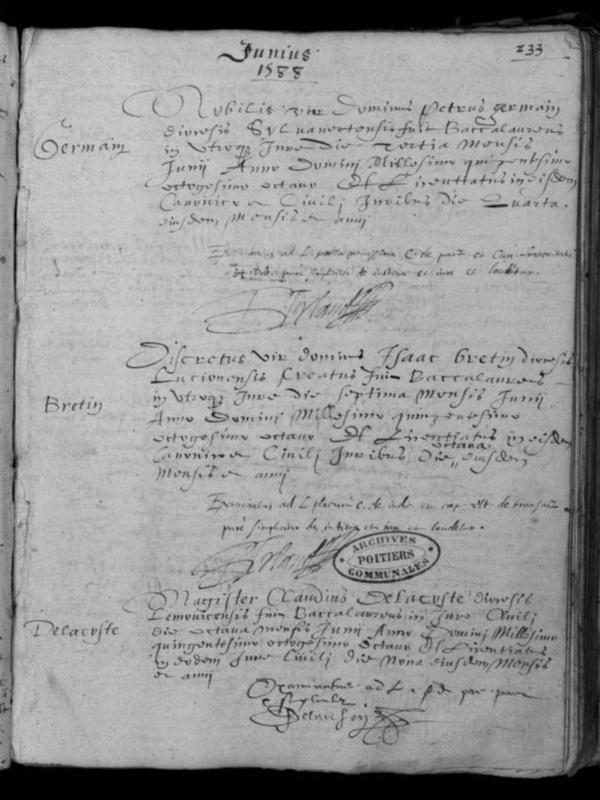 Junius
1588
233
Germain
Nobilis vir Dominus Petrus Germain
diocesis Sylvanectensis fuit Baccalaureus
in utroq; Jure die tertia Mensis
Junii Anno Domini Millesimo quingentesimo
octogesimo octavo Et Licentiatus in eisdem
Canonico et Civili Juribus Die Quarta
eiusdem Mensis et anni
Bretin
Discretus vir dominus Isaac Bretin diocesis
Lucionensis Creatus fuit Baccalaureus
in utroq; Jure die septima Mensis Junii
Anno Domini Millesimo quingentesimo
octogesimo octavo Et Licentiatus in eisdem
Canonico et Civili Juribus Die octava eiusdem
Mensis et anni
Examinatus ad L
pure simpliciter de justitia et jure et laudetur.
ARCHIVES
POITIERS
COMMUNALES
Delacoste
Magister Claudius Delacoste diocesis
Lemovicensis fuit Baccalaureus in Jure Civili
die octava Mensis Junii Anno Domini Millesimo
quingentesimo octogesimo octavo Et Licentiatus
in eodem Jure Civili die Nona eiusdem Mensis
et anni
Examinatus ad L